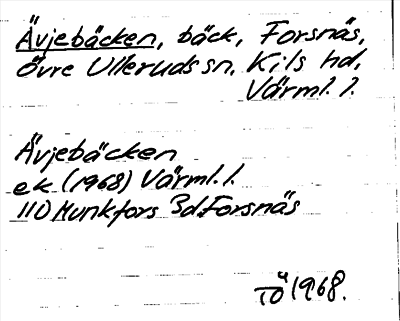 Ävjebäcken, bäck, Forsnäs,
övre Ulleruds sn. Kils hd.
Värml. l.
Ävjebäcken
ek (1968) Värml. l.
110 Munkfors 3d. Forsnäs
TÖ 1968.